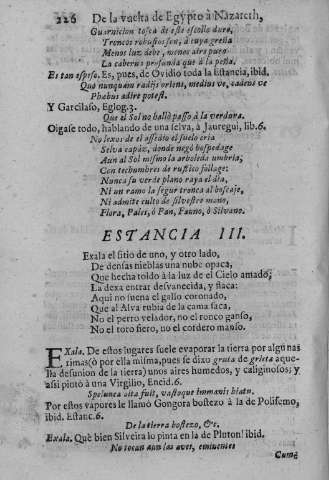 226 De la vuelta de Egypto à Nazareth,
Guarnicion tosca de este escollo duro,
Troncos robustos son, à cuya greña
Menos luz debe, menos aire puro
La caberna profunda que à la peña.
Es tan espeso. Es, pues, de Ovidio toda la Estancia, ibid.
Quæ nunquam radijs oriens, medius ve, cadens ve
Phœbus adire potest.
Y Garcilaso, Eglog. 3.
Que el Sol no halló passo à la verdura.
Oigase todo, hablando de una selva, à Jauregui, lib. 6.
No lexos de el assedio el suelo cria
Selva capáz, donde negó hospedage
Aun al Sol mismo la arboleda umbria,
Con techumbres de rustico follage:
Nunca su verde plano raya el dia,
Ni un ramo la segur tronca al boscaje,
Ni admite culto de silvestre mano,
Flora, Pales, ò Pan, Fauno, ò Silvano.
ESTANCIA III.
Exala el sitio de uno, y otro lado,
De densas nieblas una nube opaca,
Que hecha toldo à la luz de el Cielo amado;
La dexa entrar desvanecida, y flaca:
Aqui no suena el gallo coronado,
Que al Alva rubia de la cama saca,
No el perro velador, no el ronco ganso,
No el toro fiero, no el cordero manso.
Exala. De estos lugares suele evaporar la tierra por algunas
rimas (ò por ella misma, pues se dixo gruta de grieta aque-
lla desunion de la tierra) unos aires humedos, y caliginosos; y
assi pintò a una Virgilio, Eneid. 6.
Spelunca alta fuit, vastoque immanis hiatu.
Por estos vapores le llamó Gongora bostezo à la de Polifemo,
ibid. Estanc. 6.
De la tierra bostezo, &c.
Exala. Què bien Silveira lo pinta en la de Pluton! ibid.
No tocan aun las aves, eminentes
Cum